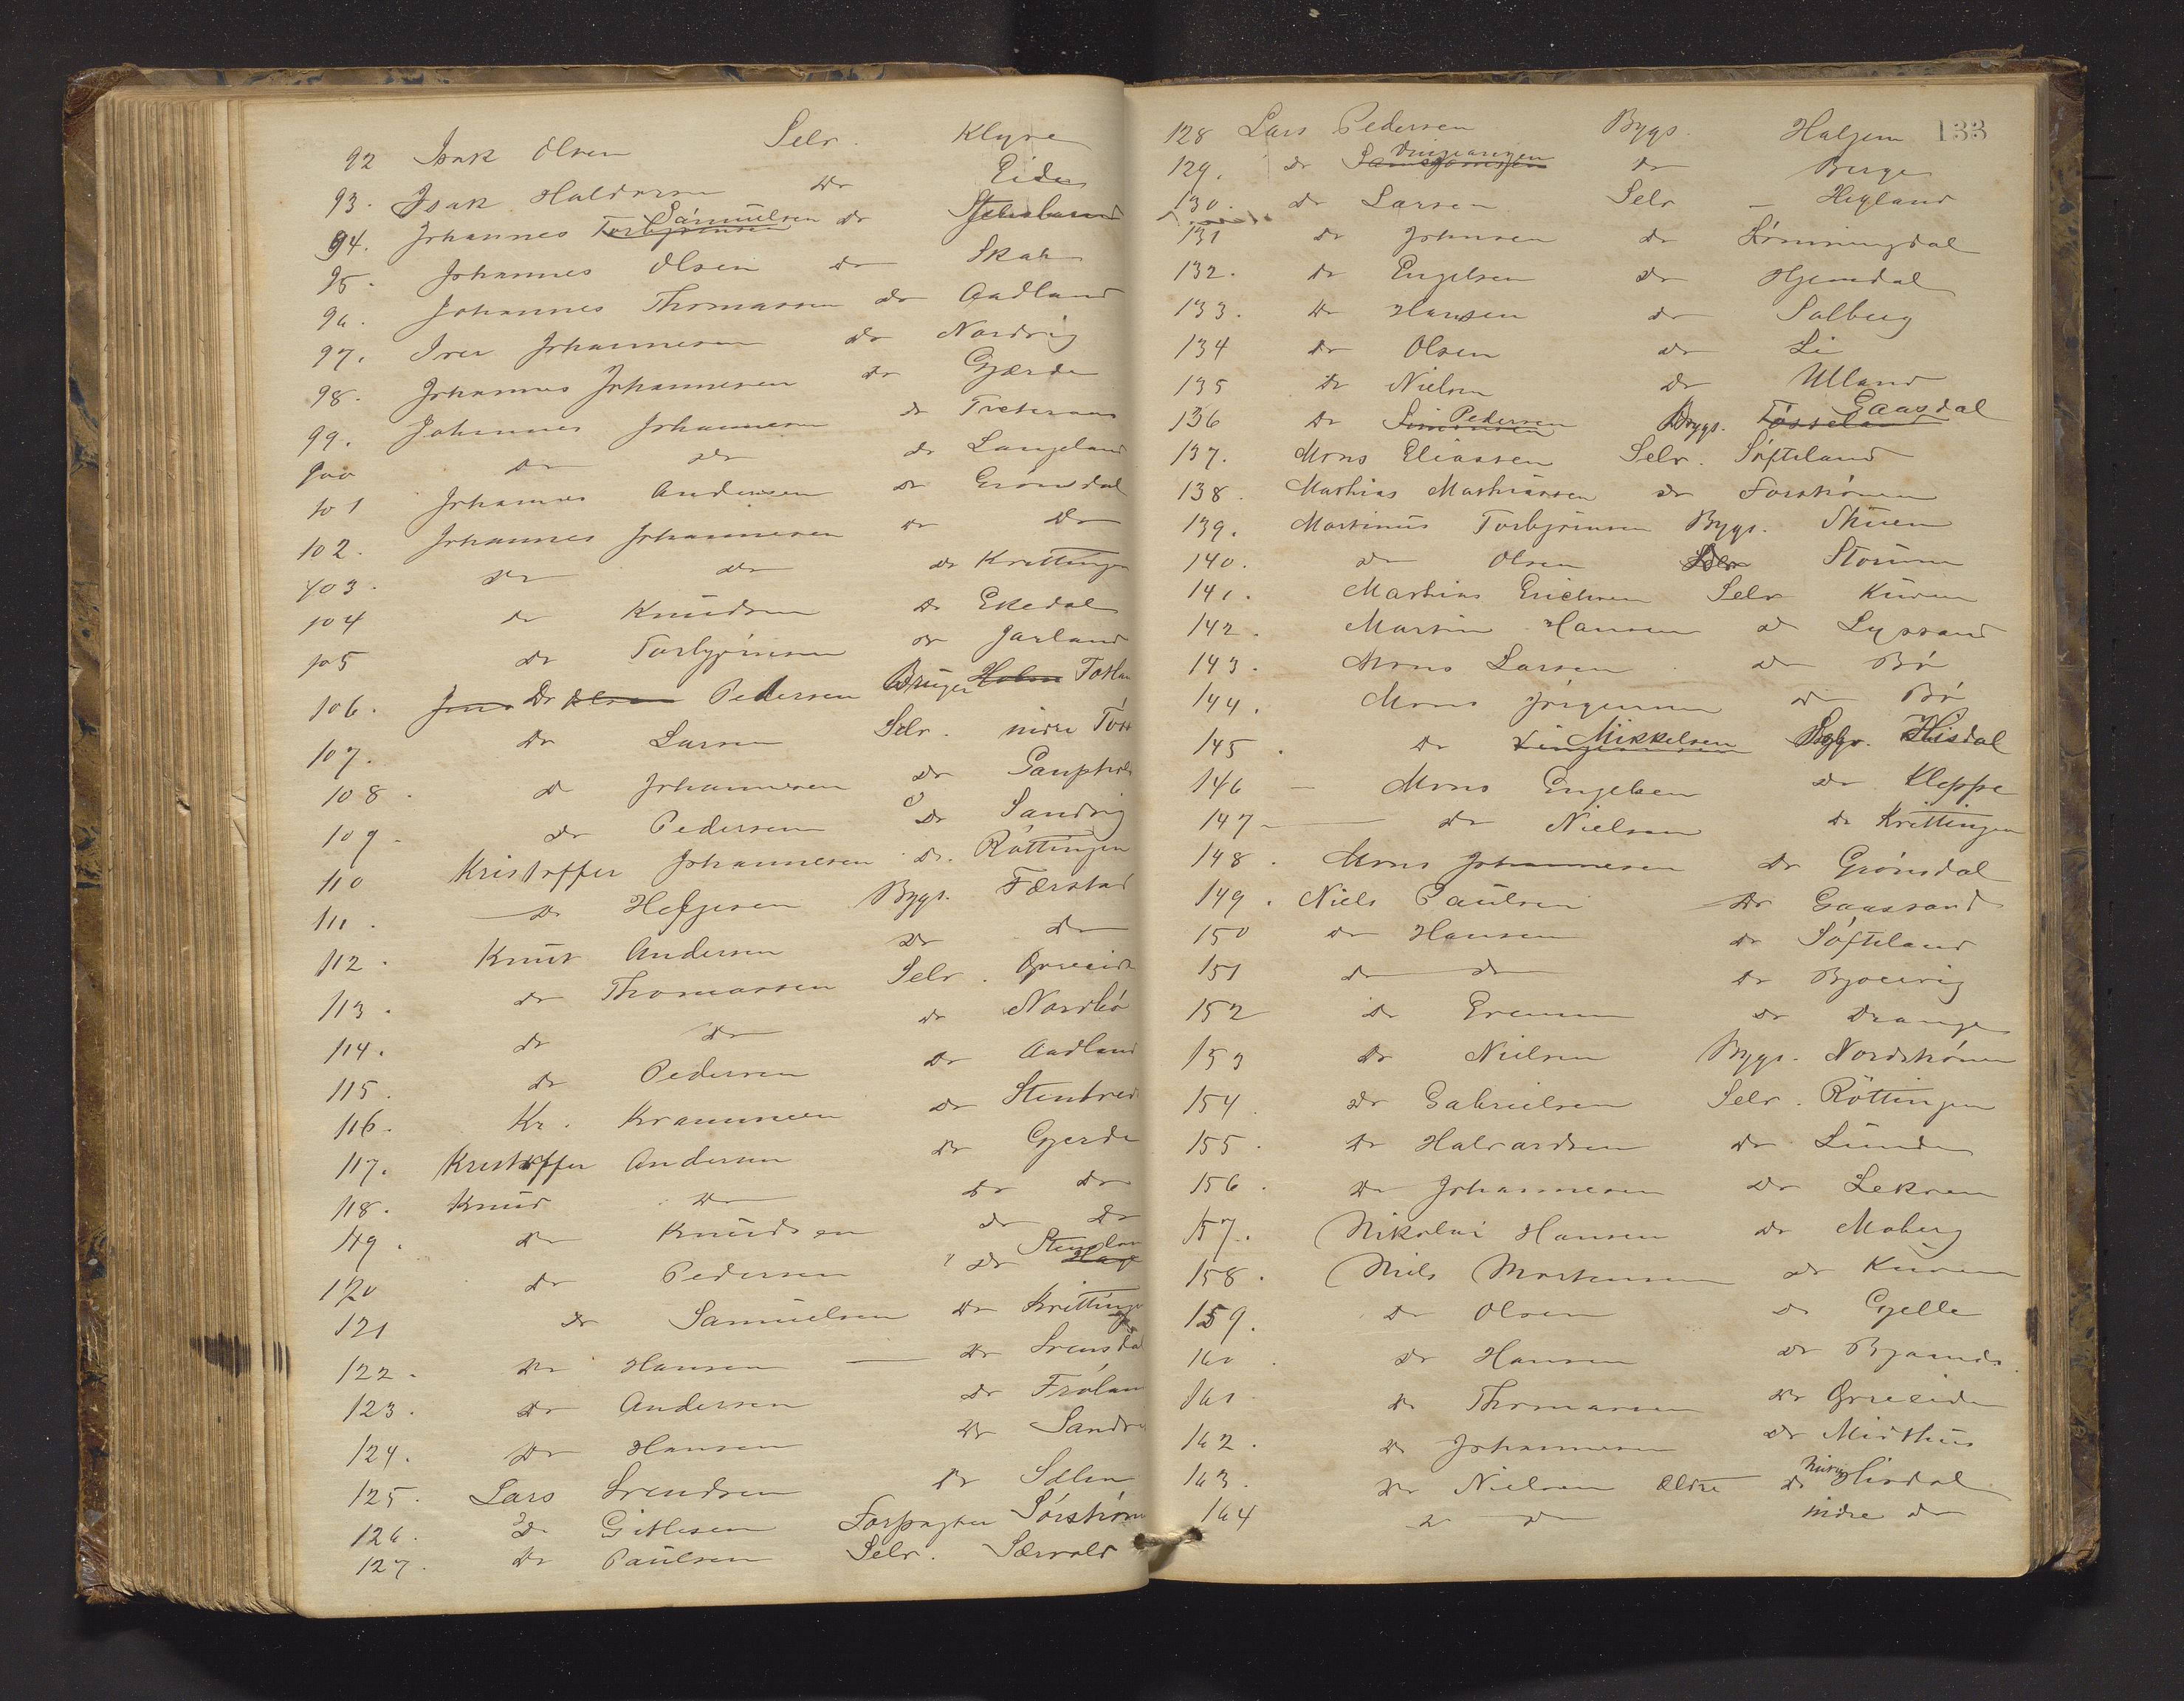 92 Isak Olsen Selv. Klyve
93. Isak Haldorsen Do Eide
94. Johannes Torbjørnsen Samuelsen do
95. Johannes Olsen do Skah
96. Johannes Thomassen do Aadland
97. Iver Johannesen do Nordvig
98. Johannes Johannesen do Gjærde
99. Johannes Johannesen do Tveteraas
100 do do do Langeland
101 Johannes Andersen do Grönsdal
102. Johannes Johannesen do Do
103. do do do Kvittingen
104 do Knudsen do Ekedal
105 do Torbjørnsen do Jarland
106. Jens Do Olsen Pedersen Bruger Holm
107. do Larsen Selv. nedre
108. do Johannesen do Gaupholm
109. do Pedersen do Sandvig
110 Kristoffer Johannesen do. Røttingen
111. do Helgesen Bygs. Færstad
112. Knut Andersen do do
113. do Thomassen Selv. Övreeide
114. do do do Nordbö
115. do Pedersen do Aadland
116. Kr. do
117. Kristoffer Andersen do Gjerde
118. Knud do do do
119. do Knudsen do do
120 do Pedersen do Hage
121 do Samuelsen do Kvitting
122. do Hansen do
123. do Andersen do Fröland
124. do Hansen do Sandv
125. Lars Svendsen do
126. Do Gitlesen Forpagter Sörström
127. do Paulsen Selv. Særvold
128 Lars Pedersen Bygs. Haljem 133
129. do do Berge
130. do Larsen Selv – Hegland
131 do Johnsen do Lönningdal
132. do Engelsen do Hjemdal
133. do Hansen do Solberg
134 do Olsen do Li
135 do Nielsen do Ulland
136 do Simonsen Pedersen Bygs. Tösseland Gaasdal
137. Mons Eliassen Selv. Söfteland
138. Mathias Mathiassen do Forströnen
139. Martinus Torbjörnsen Bygs. Skuen
140. do Olsen do Storum
141. Mathias Erichsen Selv Kuven
142. Martin Hansen do Lyssand
143. Mons Larsen do Bö
144. Mons Jörgensen do Bö
145. do Mikkelsen Hisdal
146 – Mons Engelsen do Kleppe
147 – do Nielsen do Kvittingen
148. Mons Johannesen do Grönsdal
149. Niels Paulsen do Gaassand
150 do Hansen do Söfteland
151 do do do Bjoervig
152 do do Drange
153 do Nielsen Bygs. Nordströnen
154 do Gabrielsen Selv. Röttingen
155. do Halvardsen do Lunde
156. do Johannesen do Lekven
157. Nikolai Hansen do Moberg
158. Niels Mortensen do Kuven
159. do Olsen do Gjelle
160. do Hansen do Bjaanes
161 do Thomassen do Övreeide
162. do Johannesen do
163. do Nielsen Eldre do Hisdal
164 do do nidre do